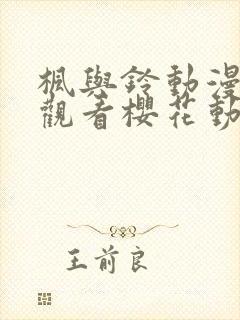 楓與鈴動漫
觀看櫻花動
王前良